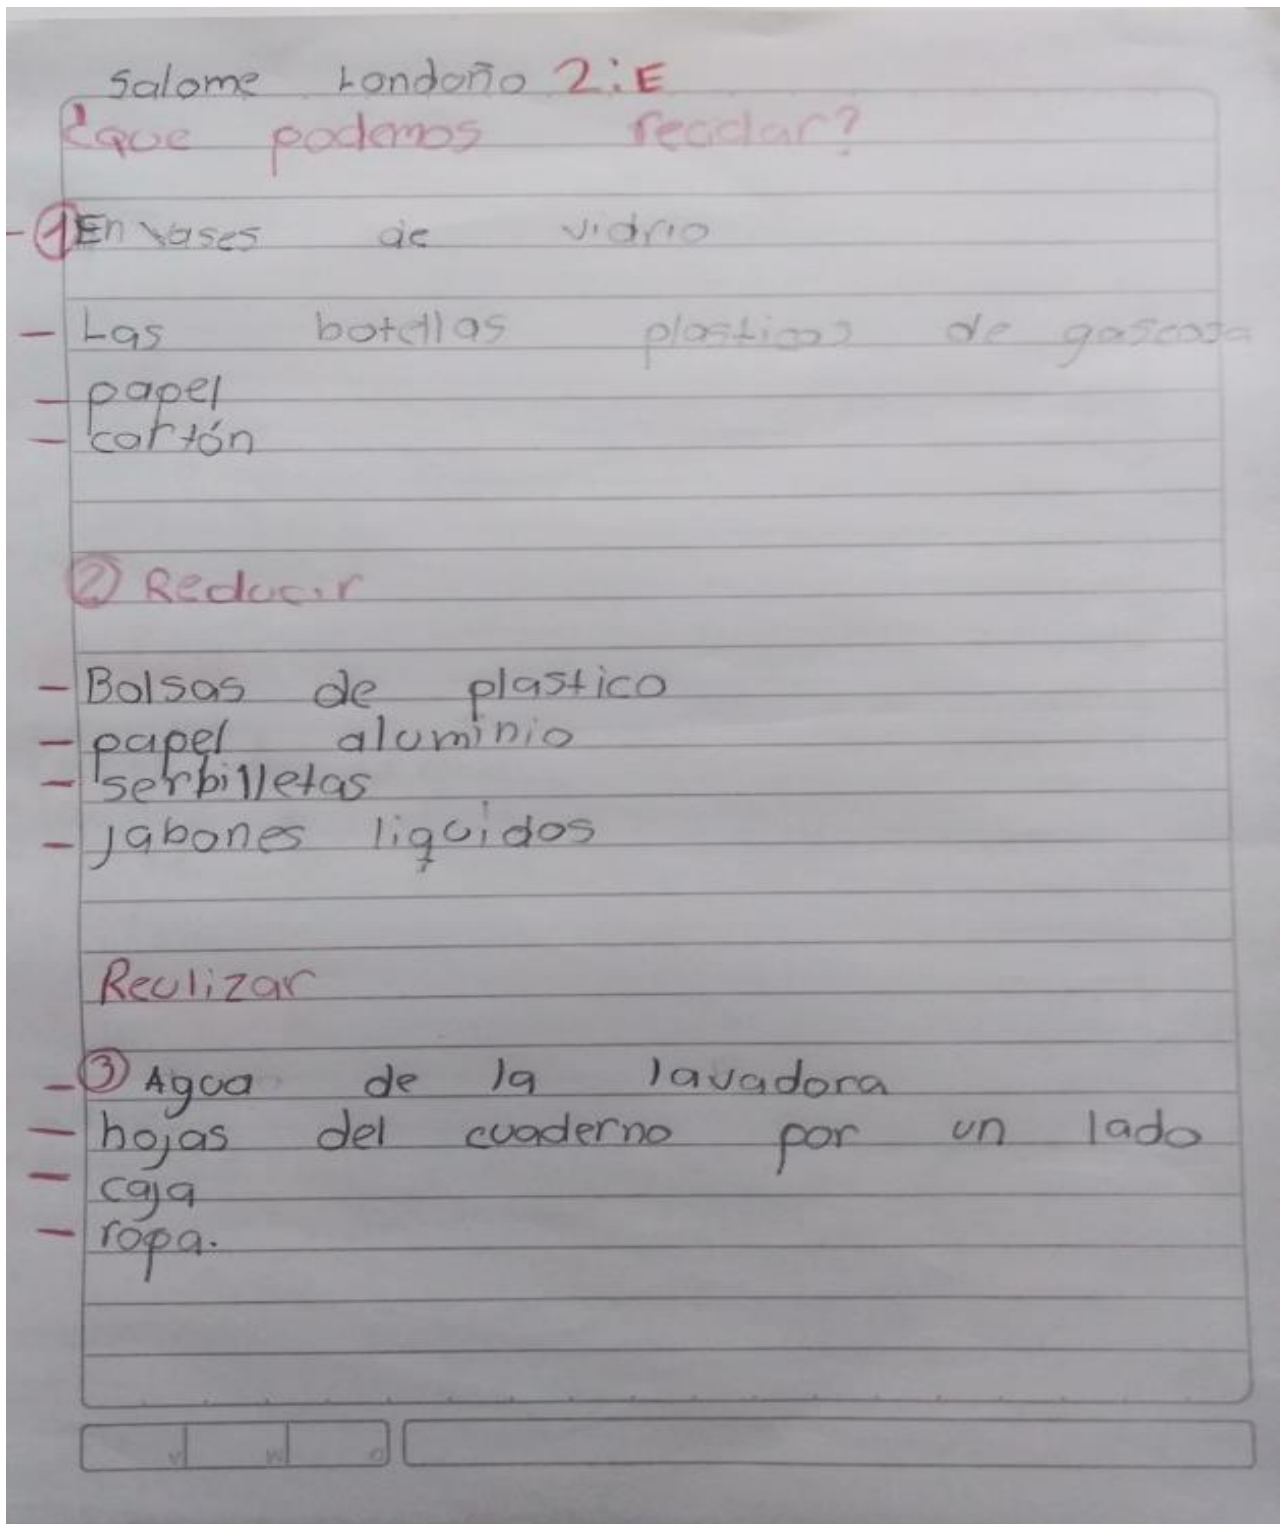 Salome Londoño 2:E
¿que podemos reciclar?
- 1 Envases de vidrio
- Las botellas plasticas de gaseosa
- papel
- cartón
2 Reducir
- Bolsas de plastico
- papel aluminio
- serbilletas
- jabones liquidos
Reulizar
- 3 Agua de la lavadora
- hojas del cuaderno por un lado
- caja
- ropa.